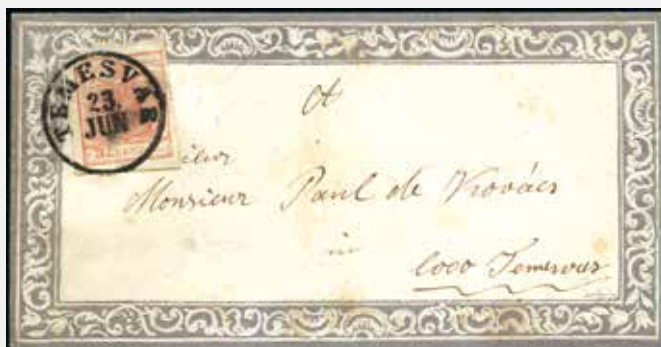 TEMESVÁR
23.
JUN
A
Monsieur
Monsieur Paul de Kovács
in
loco Temesvar